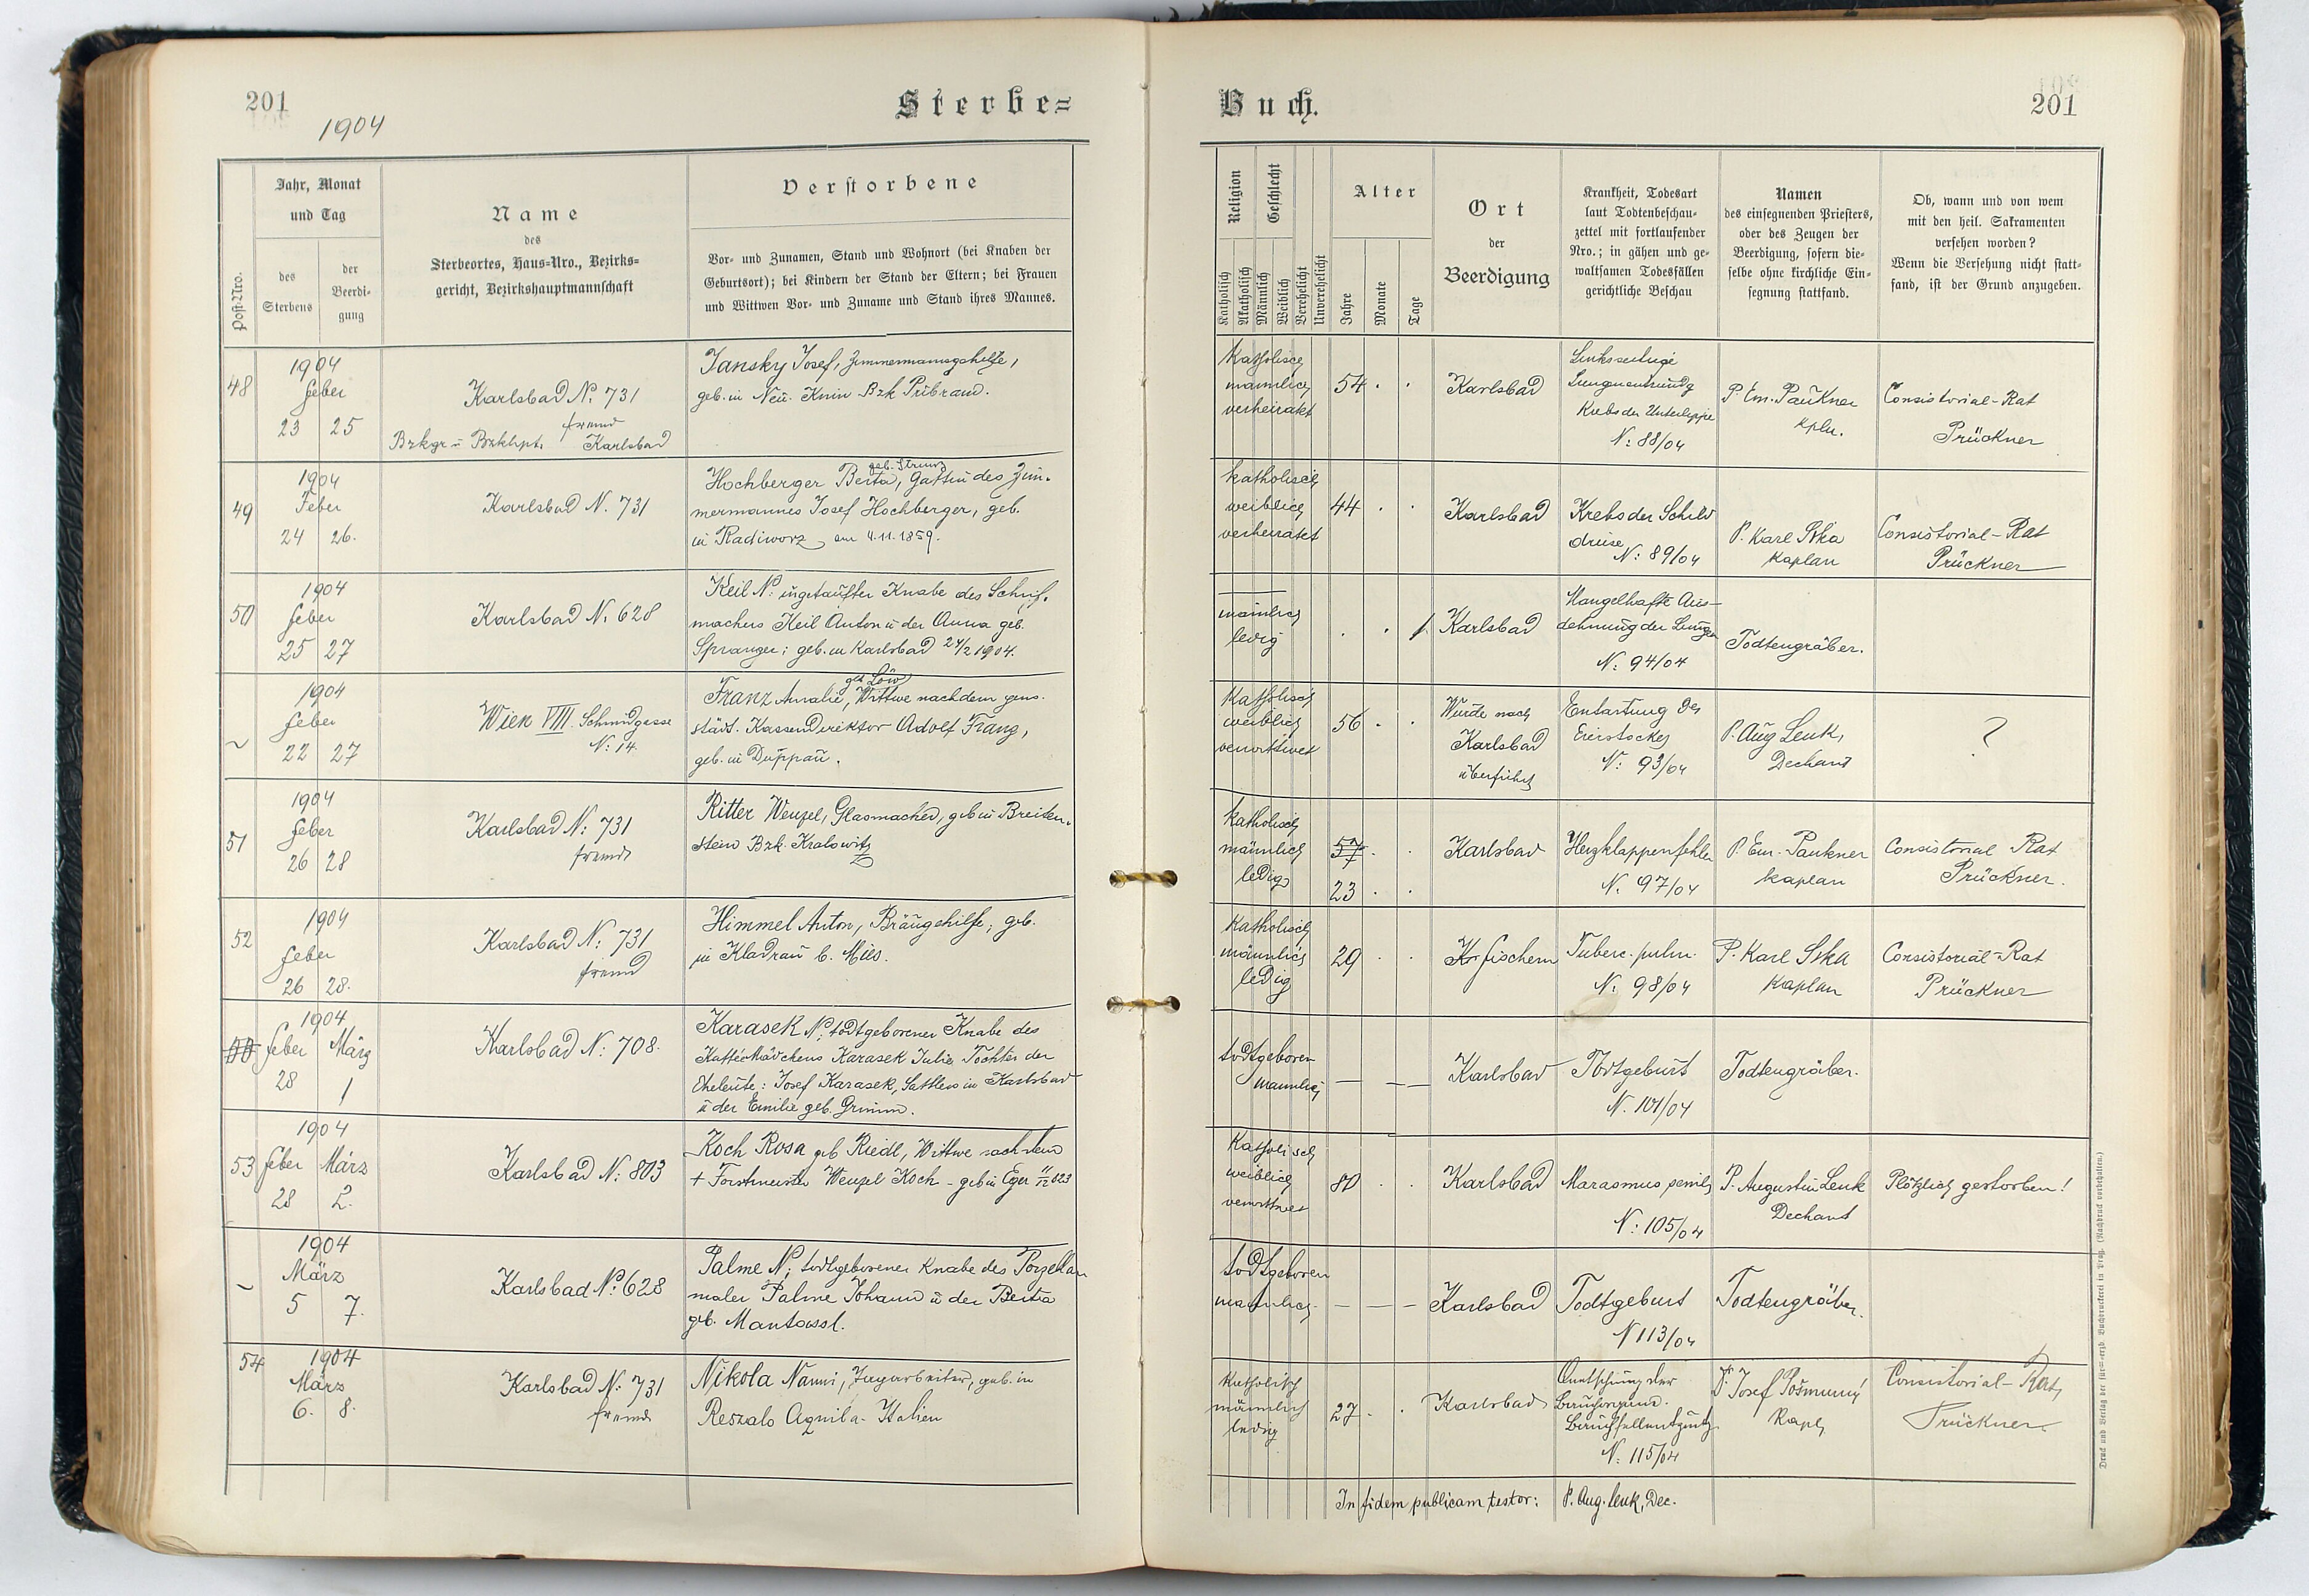 201
1904
Sterbe=
Post-Nro.
Jahr, Monat
und Tag
des
Sterbens
der
Beerdi-
gung
Name
des
Sterbeortes, Haus-Nro., Bezirks-
gericht, Bezirkshauptmannschaft
Verstorbene
Vor- und Zunamen, Stand und Wohnort (bei Knaben der
Geburtsort); bei Kindern der Stand der Eltern; bei Frauen
und Wittwen Vor- und Zuname und Stand ihres Mannes.
48
1904
Feber
23 25
Karlsbad N: 731
fremd
Bzkgr u Bzkhpt. Karlsbad
Jansky Josef, Zimmermannsgehilfe,
geb. in Neu-Knin Bzk Přibram.
49
1904
Feber
24 26.
Karlsbad N. 731
geb. Strunz
Hochberger Berta, Gattin des Zim-
mermannes Josef Hochberger, geb.
in Radiworz am 4.11.1859.
50
1904
Feber
25 27
Karlsbad N. 628
Keil N: ungetaufter Knabe des Schuh-
machers Keil Anton u der Anna geb.
Spranger; geb. in Karlsbad 24/2 1904.
~
1904
Feber
22 27
Wien VIII. Schmidgasse
N: 14.
geb Löw
Franz Amalie, Wittwe nach dem pens.
städt. Kassendirektor Adolf Franz,
geb. in Duppau.
51
1904
Feber
26 28
Karlsbad N: 731
fremd
Ritter Wenzel, Glasmacher, geb in Breiten-
stein Bzk. Kralowitz
52
1904
Feber
26 28.
Karlsbad N: 731
fremd
Himmel Anton, Bräugehilfe; geb.
in Kladrau b. Mies.
1904
Feber März
28 1
Karlsbad N: 708.
Karasek N; todtgeborener Knabe des
Kaffeemädchens Karasek Julie Tochter der
Eheleute: Josef Karasek, Sattlers in Karlsbad
u der Emilie geb. Grimm.
53
1904
Feber März
28 2.
Karlsbad N: 803
Koch Rosa geb Riedl, Wittwe nach dem
+ Forstmeister Wenzel Koch - geb in Eger 823
~
1904
März
5 7.
Karlsbad No 628
Palme N; todtgeborener Knabe des Porzellan
maler Palme Johann u der Berta
geb. Mantassl.
54
1904
März
6. 8.
Karlsbad N: 731
fremd
Nikola Nanni, Tagarbeiter, geb. in
Reszalo Aquila - Italien
Buch.
201
Religion
Geschlecht
Katholisch
Akatholisch
Männlich
Weiblich
Verehelicht
Unverehelicht
Alter
Jahre
Monate
Tage
Ort
der
Beerdigung
Krankheit, Todesart
laut Todtenbeschau-
zettel mit fortlaufender
Nro.; in gähen und ge-
waltsamen Todesfällen
gerichtliche Beschau
Namen
des einsegnenden Priesters,
oder des Zeugen der
Beerdigung, sofern die-
selbe ohne kirchliche Ein-
segnung stattfand.
Ob, wann und von wem
mit den heil. Sakramenten
versehen worden?
Wenn die Versehung nicht statt-
fand, ist der Grund anzugeben.
Katholisch
männlich
verheiratet
54 . .
Karlsbad
Linksseitige
Lungenentzündg
Krebs der Unterlippe
N: 88/04
P. Em. Paukner
Kpln.
Consistorial-Rat
Prückner
katholisch
weiblich
verheiratet
44 . .
Karlsbad
Krebs der Schild
drüse
N: 89/04
P. Karl Sika
Kaplan
Consistorial-Rat
Prückner
männlich
ledig
. . 1
Karlsbad
Mangelhafte Aus-
dehnung der Lungen
N: 94/04
Todtengräber.
Katholisch
weiblich
verwittwet
56 . .
Wurde nach
Karlsbad
überführt
Entartung des
Eierstockes
N: 93/04
P. Aug Lenk,
Dechant
?
Katholisch
männlich
ledig
57 . .
23 . .
Karlsbad
Herzklappenfehler
N. 97/04
P. Em. Paukner
Kaplan
Consistorial Rat
Prückner.
Katholisch
männlich
ledig
29 . .
K. fischern
Tuberc. pulm.
N: 98/04
P. Karl Sika
Kaplan
Consistorial-Rat
Prückner
todtgeboren
männlich
— — —
Karlsbad
Todtgeburt
N. 101/04
Todtengräber.
Katholisch
weiblich
verwittwet
80 . .
Karlsbad
Marasmus senilis
N: 105/04
P. Augustin Lenk
Dechant
Plötzlich gestorben!
todtgeboren
männlich
— — —
Karlsbad
Todtgeburt
N 113/04
Todtengräber.
Katholisch
männlich
ledig
27 . .
Karlsbad
Quetschung der
Bauchfellentzündg
N: 115/04
P. Josef Pošmurný
Kapl.
Consistorial-Rat
Prückner
In fidem publicam testor: P. Aug. Lenk, Dec.
Druck und Verlag der fürst-erzb. Buchdruckerei in Prag. (Nachdruck vorbehalten.)